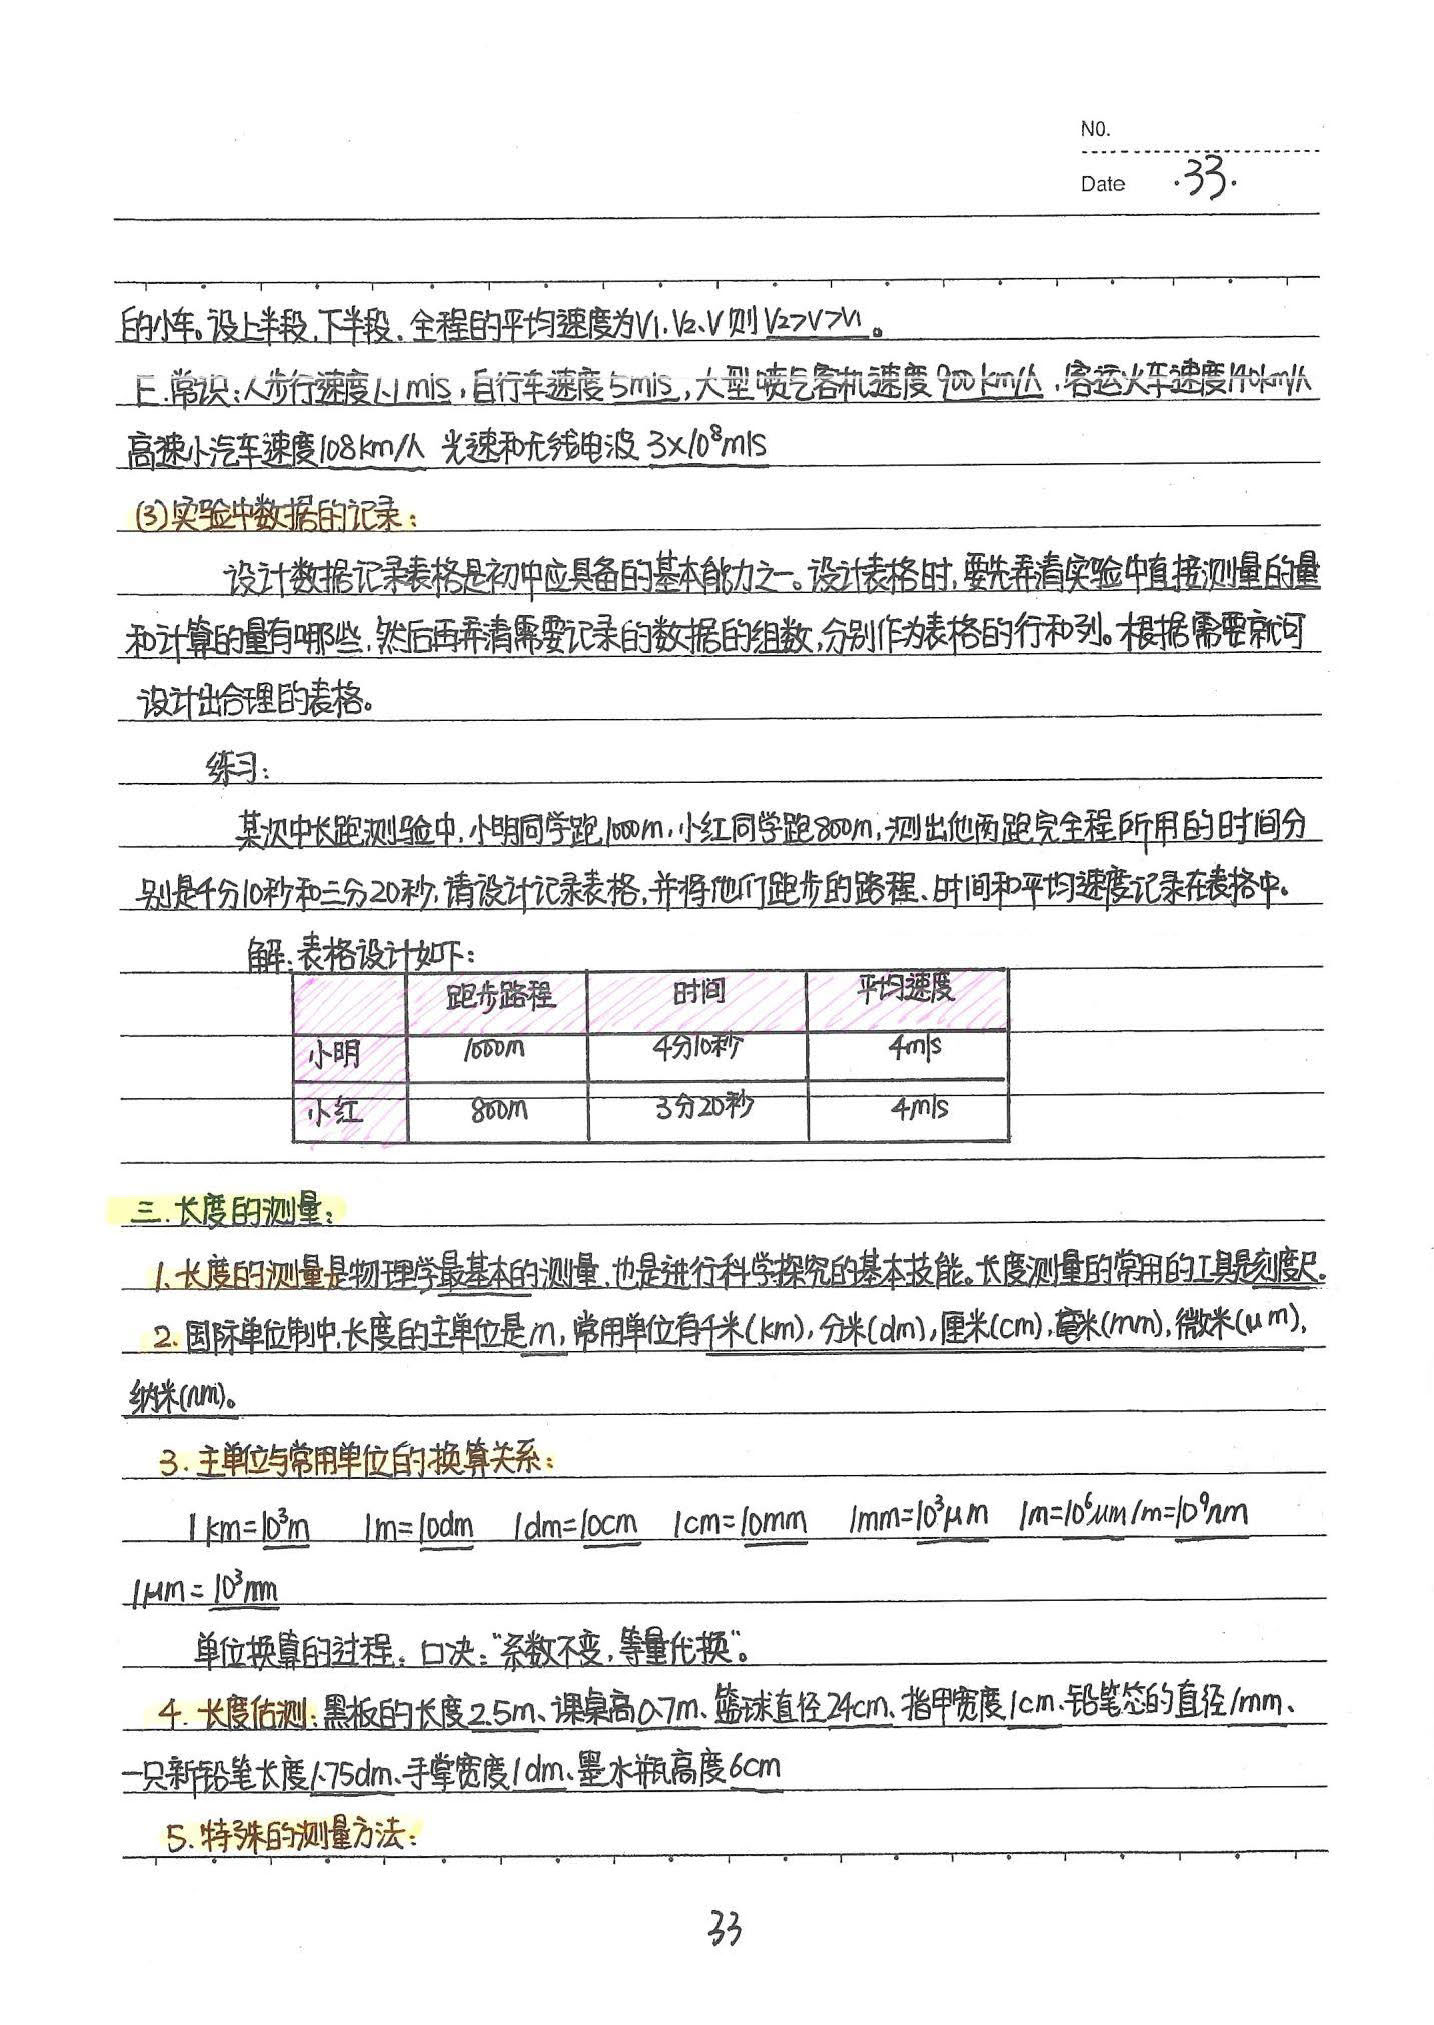 NO.
Date ·33.
的小车。设上半段、下半段、全程的平均速度为V1、V2、V则V2>V>V1。
E.常识:人步行速度1.1m/s,自行车速度5m/s,大型喷气客机速度900km/h,客运火车速度140km/h
高速小汽车速度108km/h 光速和无线电波 3×10⁸m/s
(3)实验中数据的记录:
设计数据记录表格是初中应具备的基本能力之一。设计表格时,要先弄清实验中直接测量的量
和计算的量有哪些,然后再弄清需要记录的数据的组数,分别作为表格的行和列。根据需要就可
设计出合理的表格。
练习:
某次中长跑测验中,小明同学跑1000m,小红同学跑800m,测出他两跑完全程所用的时间分
别是4分10秒和三分20秒,请设计记录表格,并将他们跑步的路程、时间和平均速度记录在表格中。
解:表格设计如下:
跑步路程 时间 平均速度
小明 1000m 4分10秒 4m/s
小红 800m 3分20秒 4m/s
三.长度的测量:
1.长度的测量是物理学最基本的测量,也是进行科学探究的基本技能。长度测量的常用的工具是刻度尺。
2.国际单位制中,长度的主单位是m,常用单位有千米(km),分米(dm),厘米(cm),毫米(mm),微米(μm),
纳米(nm)。
3.主单位与常用单位的换算关系:
1km=10³m 1m=10dm 1dm=10cm 1cm=10mm 1mm=10³μm 1m=10⁶μm 1m=10⁹nm
1μm=10³nm
单位换算的过程:口决:"系数不变,等量代换"。
4.长度估测:黑板的长度2.5m、课桌高0.7m、篮球直径24cm、指甲宽度1cm、铅笔芯的直径1mm、
一只新铅笔长度1.75dm、手掌宽度1dm、墨水瓶高度6cm
5.特殊的测量方法:
33